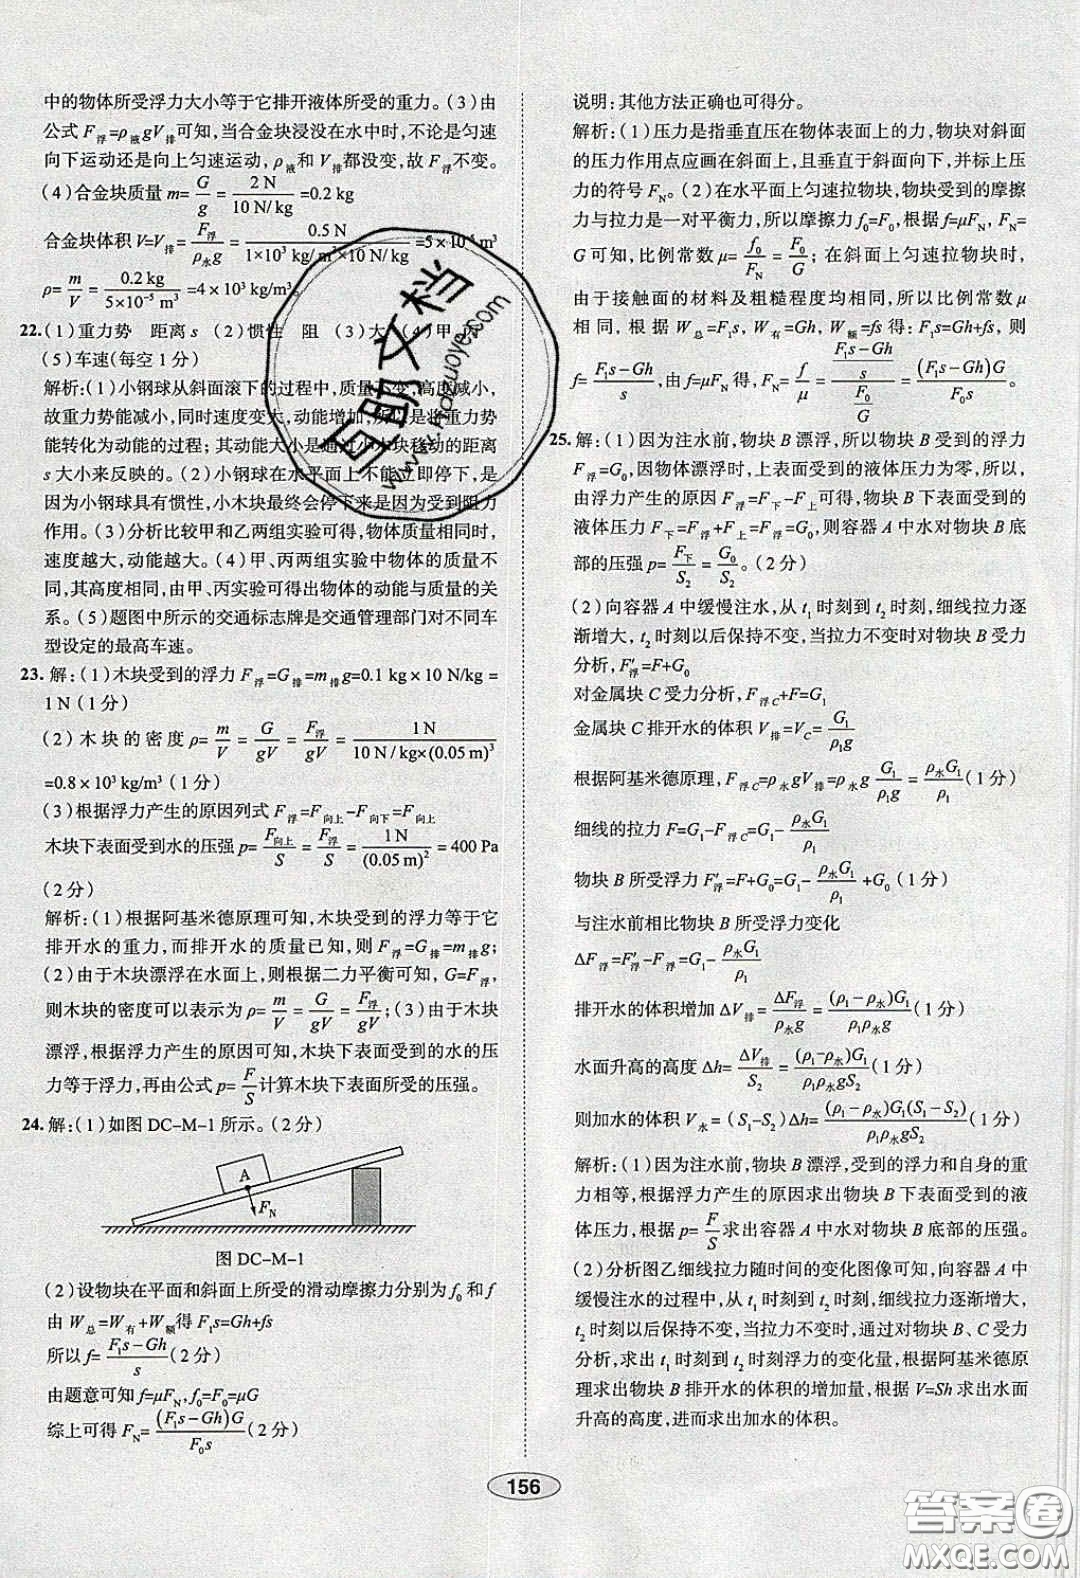 中的物体所受浮力大小等于它排开液体所受的重力。(3)由
公式 F浮=ρ液gV排可知,当合金块浸没在水中时,不论是匀速
向下运动还是向上匀速运动,ρ液和 V排都没变,故 F浮不变。
(4)合金块质量 m=G/g=2 N/10 N/kg=0.2 kg
合金块体积 V=V排=F浮/ρ水g=0.5 N/1×10³ kg/m³×10 N/kg=5×10⁻⁵ m³
ρ=m/V=0.2 kg/5×10⁻⁵ m³=4×10³ kg/m³
22.(1)重力势 距离 s (2)惯性 阻 (3)大 (4)甲、丙
(5)车速(每空 1 分)
解析:(1)小钢球从斜面滚下的过程中,质量不变,高度减小,
故重力势能减小,同时速度变大,动能增加,所以是将重力势
能转化为动能的过程;其动能大小是通过小木块移动的距离
s 大小来反映的。(2)小钢球在水平面上不能立即停下,是
因为小钢球具有惯性,小木块最终会停下来是因为受到阻力
作用。(3)分析比较甲和乙两组实验可得,物体质量相同时,
速度越大,动能越大。(4)甲、丙两组实验中物体的质量不
同,其高度相同,由甲、丙实验可得出物体的动能与质量的关
系。(5)题图中所示的交通标志牌是交通管理部门对不同车
型设定的最高车速。
23.解:(1)木块受到的浮力 F浮=G排=m排g=0.1 kg×10 N/kg=
1 N(1 分)
(2)木块的密度 ρ=m/V=G/gV=F浮/gV=1 N/10 N/kg×(0.05 m)³
=0.8×10³ kg/m³(1 分)
(3)根据浮力产生的原因列式 F浮=F向上-F向下=F向上
木块下表面受到水的压强 p=F向上/S=F浮/S=1 N/(0.05 m)²=400 Pa
(2 分)
解析:(1)根据阿基米德原理可知,木块受到的浮力等于它
排开水的重力,而排开水的质量已知,则 F浮=G排=m排g;
(2)由于木块漂浮在水面上,则根据二力平衡可知,G=F浮,
则木块的密度可以表示为 ρ=m/V=G/gV=F浮/gV;(3)由于木块
漂浮,根据浮力产生的原因可知,木块下表面受到的水的压
力等于浮力,再由公式 p=F/S计算木块下表面所受的压强。
24.解:(1)如图 DC-M-1 所示。(2 分)
A
FN
图 DC-M-1
(2)设物块在平面和斜面上所受的滑动摩擦力分别为 f₀ 和 f
由 W总=W有+W额得 F₁s=Gh+fs
所以 f=(F₁s-Gh)/s(2 分)
由题意可知 f=μFN,f₀=F₀=μG
综上可得 FN=(F₁s-Gh)G/F₀s(2 分)
说明:其他方法正确也可得分。
解析:(1)压力是指垂直压在物体表面上的力,物块对斜面
的压力作用点应画在斜面上,垂直于斜面向下,并标上压力
的符号 FN。(2)在水平面上匀速拉物块,物块受到的摩擦
力与拉力是一对平衡力,所以摩擦力 f₀=F₀,根据 f=μFN,FN=
G 可知,比例常数 μ=f₀/FN=F₀/G;在斜面上匀速拉物块时,
由于接触面的材料及粗糙程度均相同,所以比例常数 μ
相同,根据 W总=F₁s,W有=Gh,W额=fs 得:F₁s=Gh+fs,则
f=(F₁s-Gh)/s,由 f=μFN 得,FN=f/μ=((F₁s-Gh)/s)/(F₀/G)=(F₁s-Gh)G/F₀s。
25.解:(1)因为注水前,物块 B 漂浮,所以物块 B 受到的浮力
F浮=G₀,因物体漂浮时,上表面受到的液体压力为零,所以,
由浮力产生的原因 F浮=F下-F上可得,物块 B 下表面受到的
液体压力 F下=F浮+F上=F浮=G₀,则容器 A 中水对物块 B 底
部的压强 p=F下/S₂=G₀/S₂。(2 分)
(2)向容器 A 中缓慢注水,从 t₁ 时刻到 t₂ 时刻,细线拉力逐
渐增大,t₂ 时刻以后保持不变,当拉力不变时对物块 B 受力
分析,F′浮=F+G₀
对金属块 C 受力分析,F浮C+F=G₁
金属块 C 排开水的体积 V排=VC=G₁/ρ₁g
根据阿基米德原理,F浮C=ρ水gV排=ρ水g G₁/ρ₁g=ρ水G₁/ρ₁(1 分)
细线的拉力 F=G₁-F浮C=G₁-ρ水G₁/ρ₁
物块 B 所受浮力 F′浮=F+G₀=G₁-ρ水G₁/ρ₁+G₀(1 分)
与注水前相比物块 B 所受浮力变化
ΔF浮=F′浮-F浮=G₁-ρ水G₁/ρ₁
排开水的体积增加 ΔV排=ΔF浮/ρ水g=(ρ₁-ρ水)G₁/ρ₁ρ水g(1 分)
水面升高的高度 Δh=ΔV排/S₂=(ρ₁-ρ水)G₁/ρ₁ρ水gS₂(1 分)
则加水的体积 V水=(S₁-S₂)Δh=(ρ₁-ρ水)G₁(S₁-S₂)/ρ₁ρ水gS₂(1 分)
解析:(1)因为注水前,物块 B 漂浮,受到的浮力和自身的重
力相等,根据浮力产生的原因求出物块 B 下表面受到的液
体压力,根据 p=F/S求出容器 A 中水对物块 B 底部的压强。
(2)分析图乙细线拉力随时间的变化图像可知,向容器 A 中
缓慢注水的过程中,从 t₁ 时刻到 t₂ 时刻,细线拉力逐渐增大,
t₂ 时刻以后保持不变,当拉力不变时,通过对物块 B、C 受力
分析,求出 t₁ 时刻到 t₂ 时刻浮力的变化量,根据阿基米德原
理求出物块 B 排开水的体积的增加量,根据 V=Sh 求出水面
升高的高度,进而求出加水的体积。
156
自助文档
答案圈
MXQE.COM